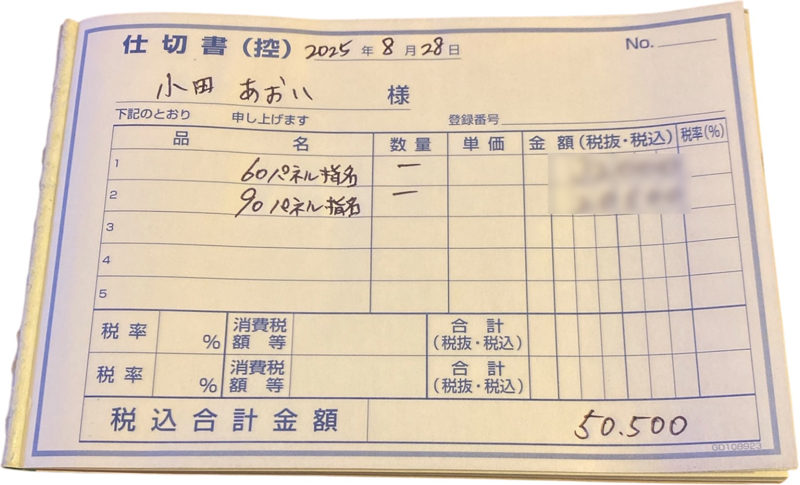 仕切書(控) 2025年8月28日 No.
小田 あおい 様
下記のとおり 申し上げます 登録番号
品名 数量 単価 金額(税抜・税込) 税率(%)
1 60パネル指名 一
2 90パネル指名 一
3
4
5
税率 % 消費税額等 合計(税抜・税込)
税率 % 消費税額等 合計(税抜・税込)
税込合計金額 50.500
GD108923